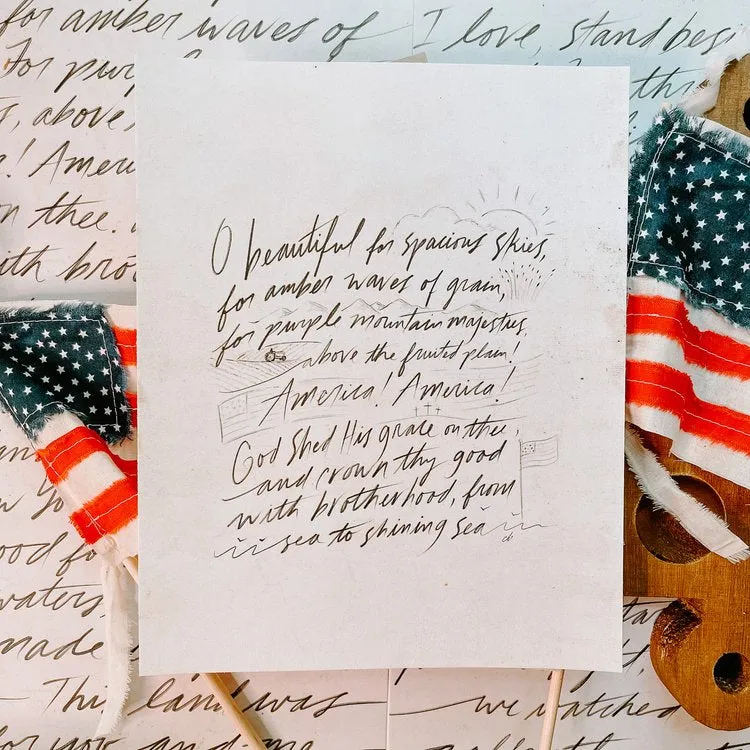 for amber waves of
I love, stand bes
for purp
th
, above
! Amer
n thee.
ith bro
O beautiful for spacious skies,
for amber waves of grain,
for purple mountain majesties
above the fruited plain!
America! America!
God shed His grace on thee,
and crown thy good
with brotherhood, from
sea to shining sea
ood fo
waters
made
This land was
we watched
for you and me